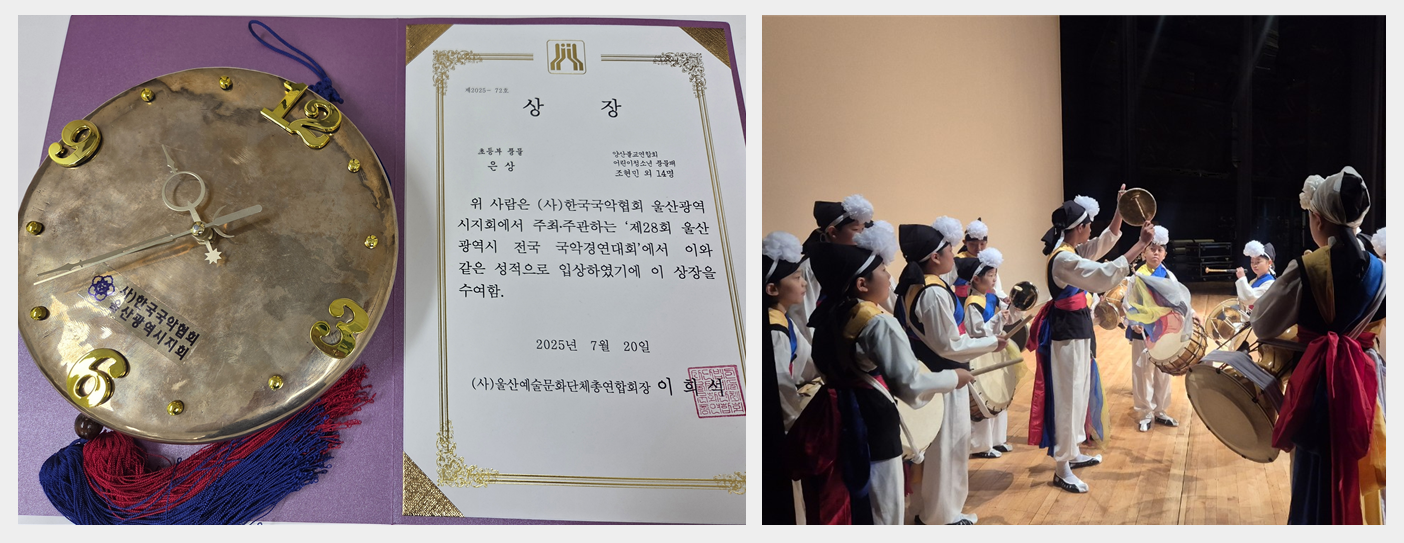 12
9
3
6
사)한국국악협회
울산광역시지회
제2025- 72호
상 장
초등부 풍물
은 상
양산불교연합회
어린이청소년 풍물패
조현민 외 14명
위 사람은 (사)한국국악협회 울산광역
시지회에서 주최·주관하는 '제28회 울산
광역시 전국 국악경연대회'에서 이와
같은 성적으로 입상하였기에 이 상장을
수여함.
2025년 7월 20일
(사)울산예술문화단체총연합회장 이 희 석